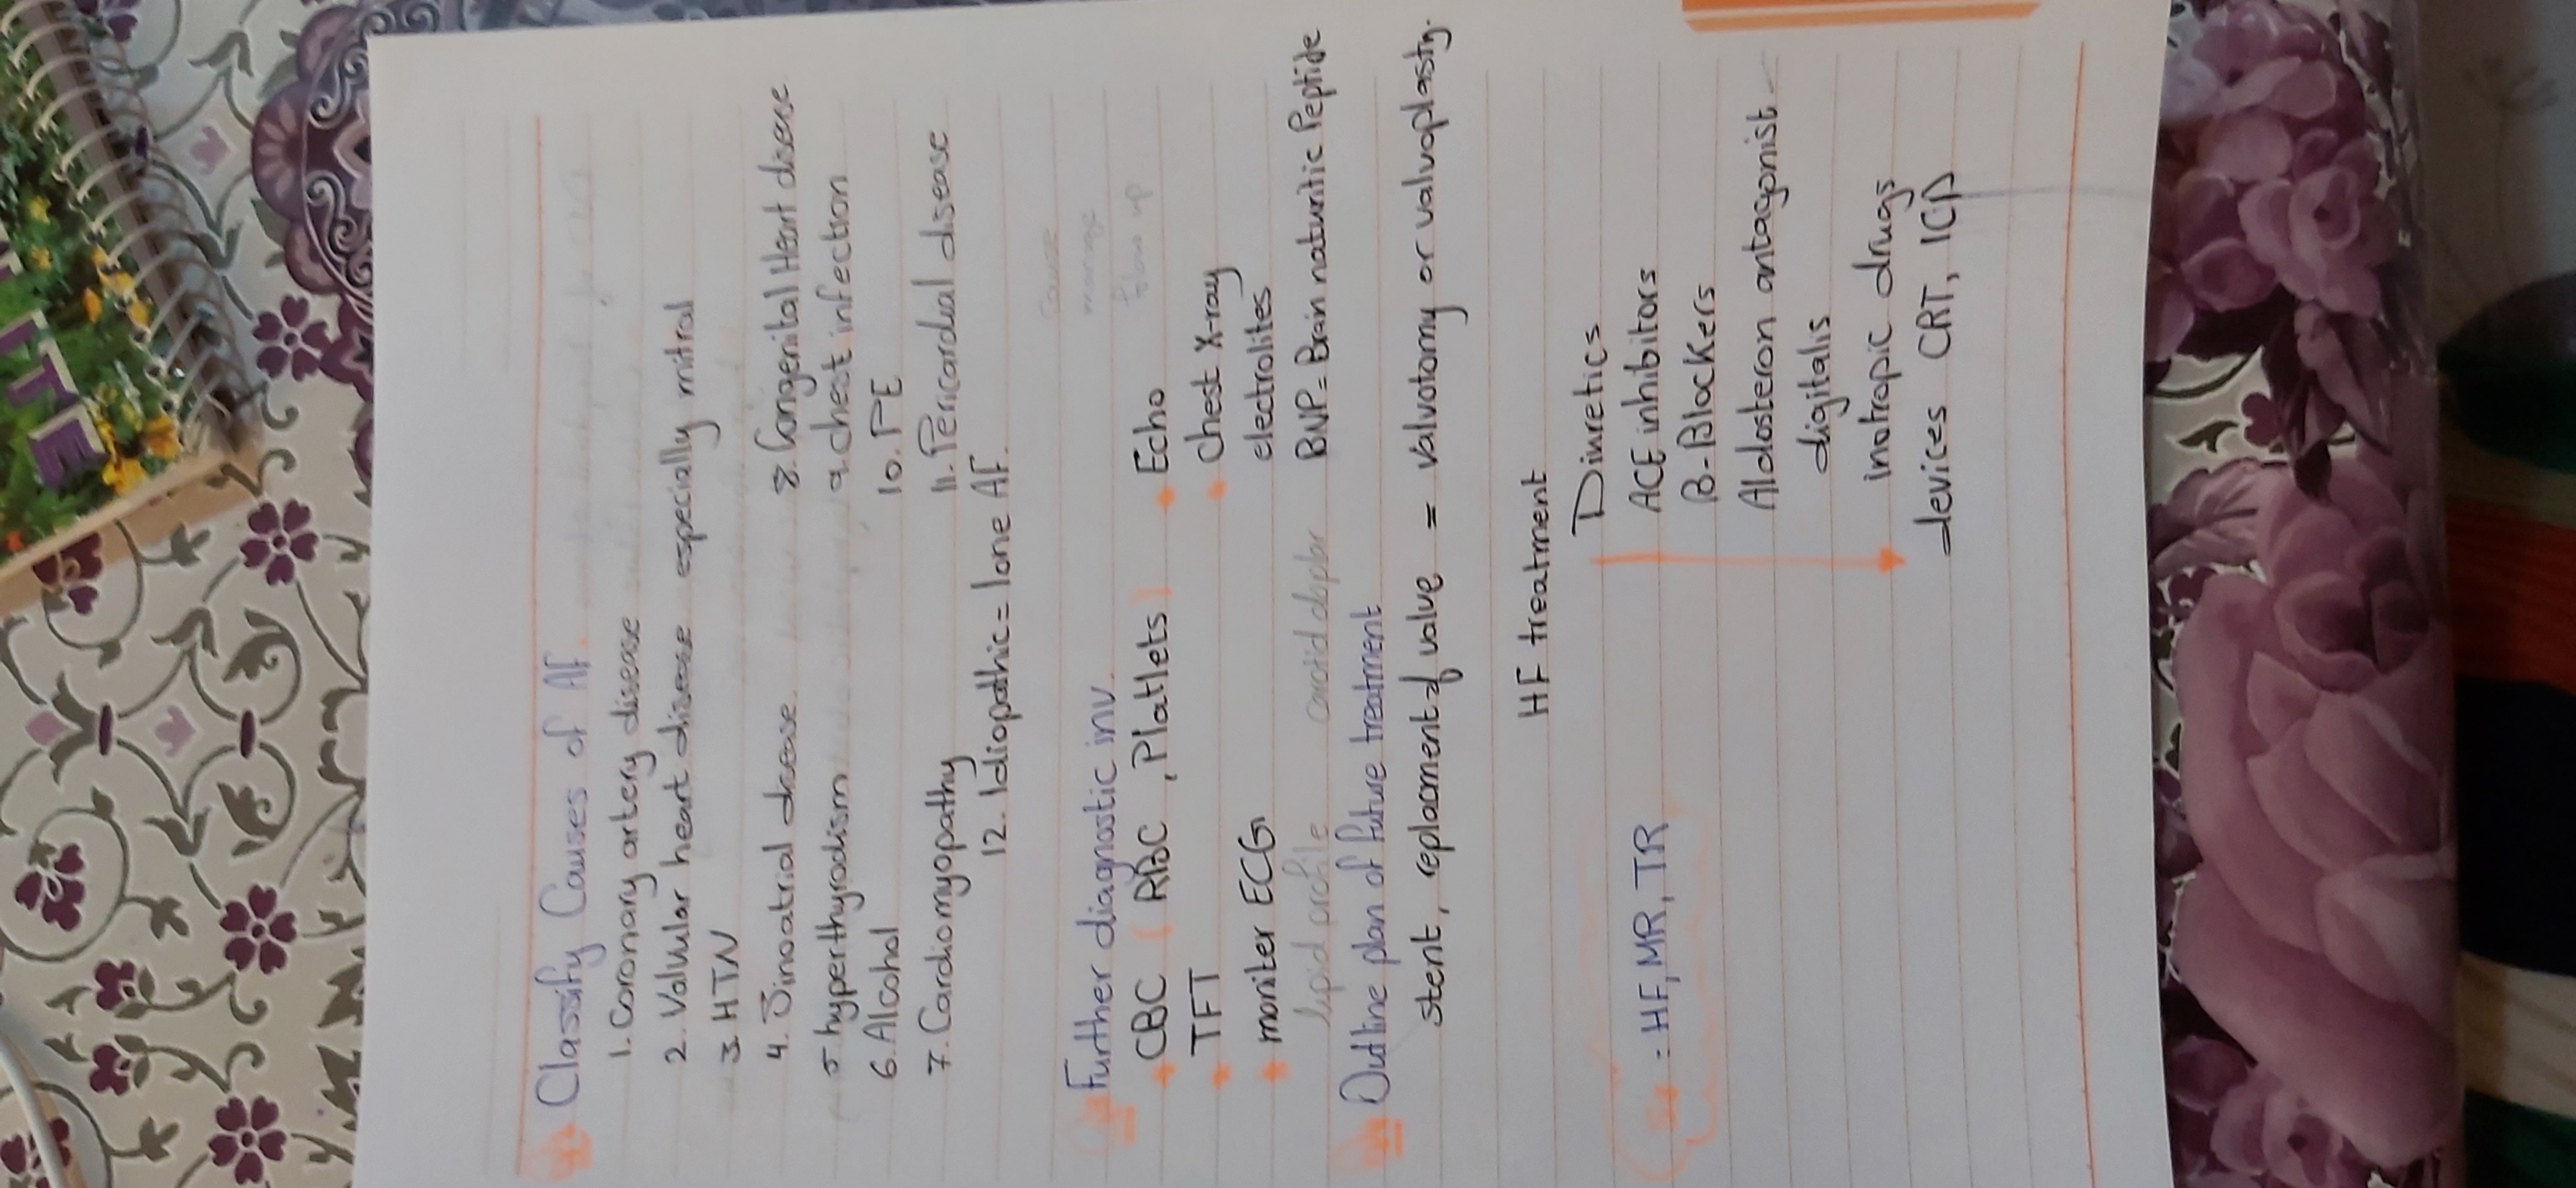 Classify Causes of AF.
1. Coronary artery disease
2. Valvular heart disease especially mitral
3. HTN
4. Sinoatrial disease. 8. Congenital Heart disease
5 hyperthyrodism 9 chest infection
6. Alcohol 10. PE
7. Cardiomyopathy 11. Pericardial disease
12. Idiopathic = lone AF.
cause
manage
follow up
Further diagnostic inv.
CBC ( RBC , Platlets ) Echo
TFT Chest X-ray
moniter ECG electrolites
lipid profile carotid doplar BNP = Brain naturitic Peptide
Outline plan of future treatment
stent, replacment of value = valvotomy or valvoplasty.
HF treatment
Diuretics
: HF, MR, TR ACE inhibitors
B-Blockers
Aldosteron antagonist
digitalis
inotropic drugs
devices CRT, ICD
ITE